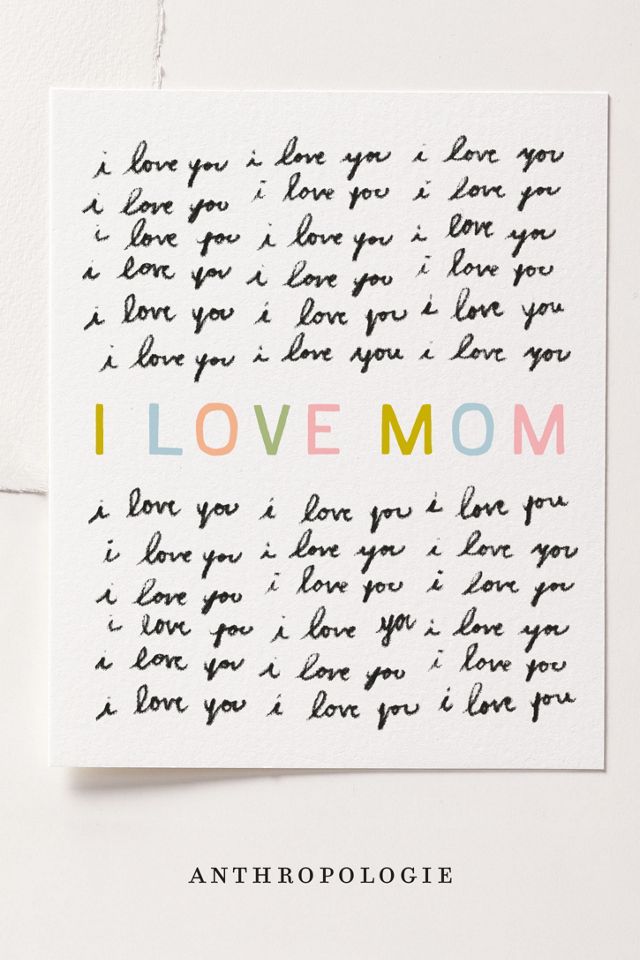 i love you i love you i love you
i love you i love you i love you
i love you i love you i love you
i love you i love you i love you
i love you i love you i love you
i love you i love you i love you
I LOVE MOM
i love you i love you i love you
i love you i love you i love you
i love you i love you i love you
i love you i love you i love you
i love you i love you i love you
i love you i love you i love you
ANTHROPOLOGIE